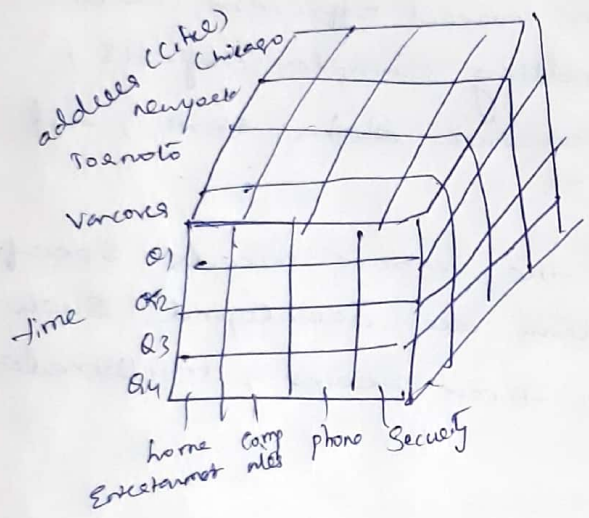 address (Cities)
Chicago
newyork
Toronto
Vancover
time
Q1
Q2
Q3
Q4
home
Entertainment
Comp
phone
Security